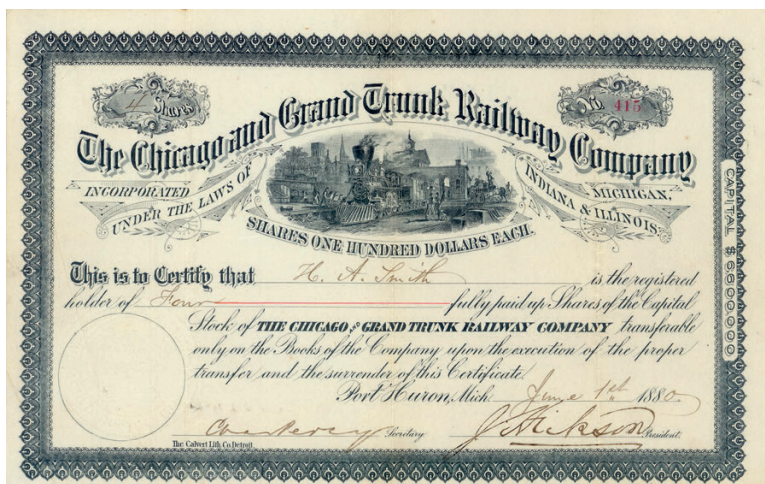 4 Shares
No. 415
The Chicago and Grand Trunk Railway Company
INCORPORATED UNDER THE LAWS OF
MICHIGAN, INDIANA & ILLINOIS.
SHARES ONE HUNDRED DOLLARS EACH.
CAPITAL $6600.000
This is to Certify that H. A. Smith is the registered
holder of Four fully paid up Shares of the Capital
Stock of THE CHICAGO AND GRAND TRUNK RAILWAY COMPANY transferable
only on the Books of the Company upon the execution of the proper
transfer and the surrender of this Certificate.
Port Huron, Mich. June 1st 1880
Secretary J Hickson President.
The Calvert Lith. Co. Detroit.